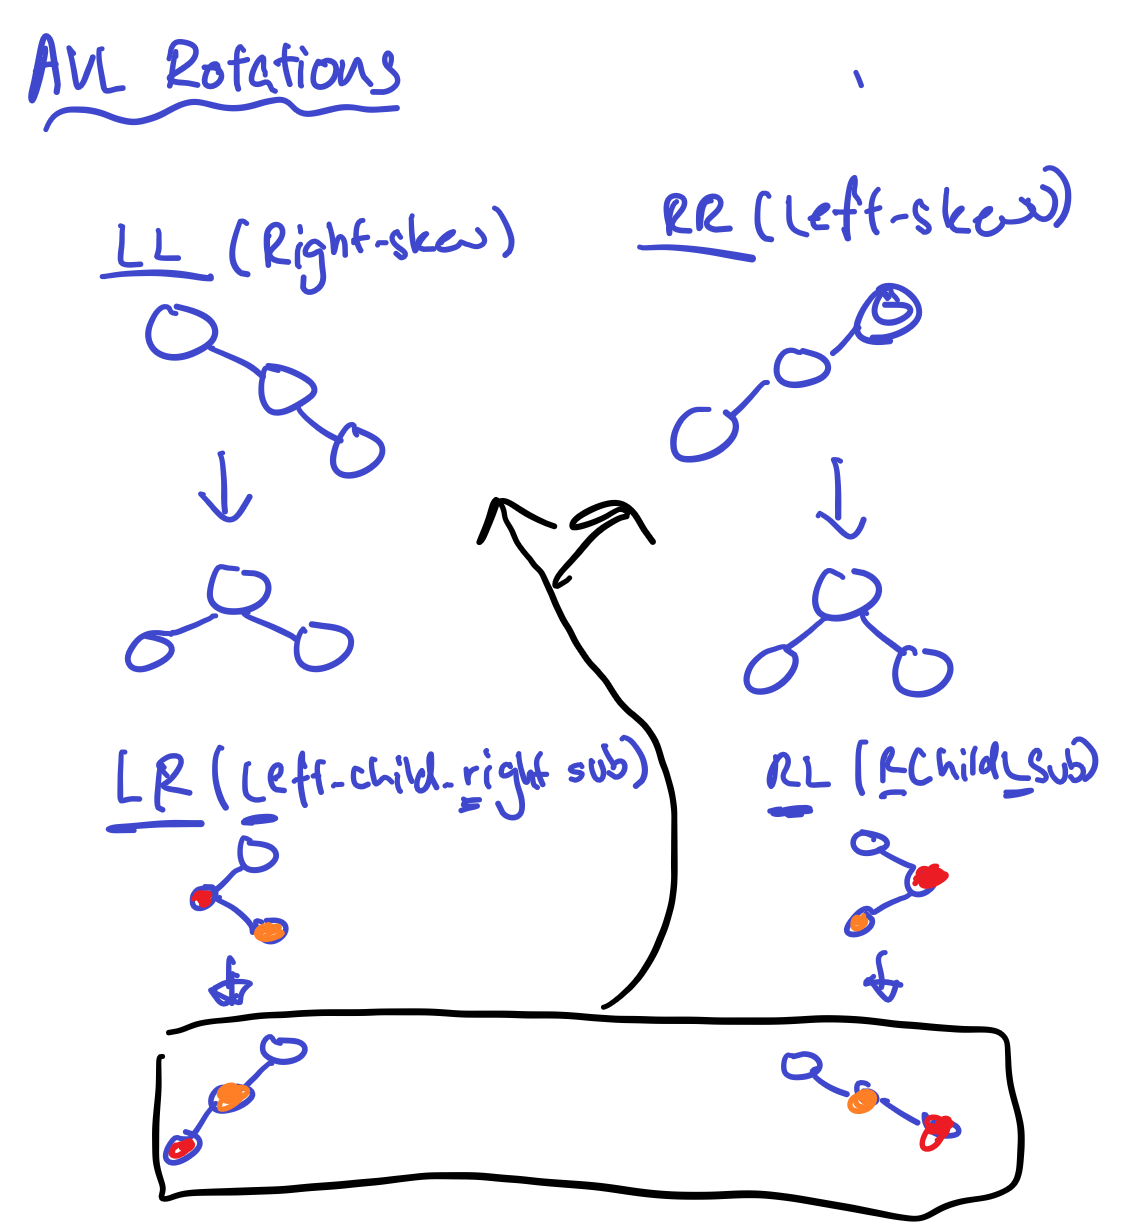 AVL Rotations
LL (Right-skew)
RR (Left-skew)
LR (Left-child-right sub)
RL (RChild Lsub)